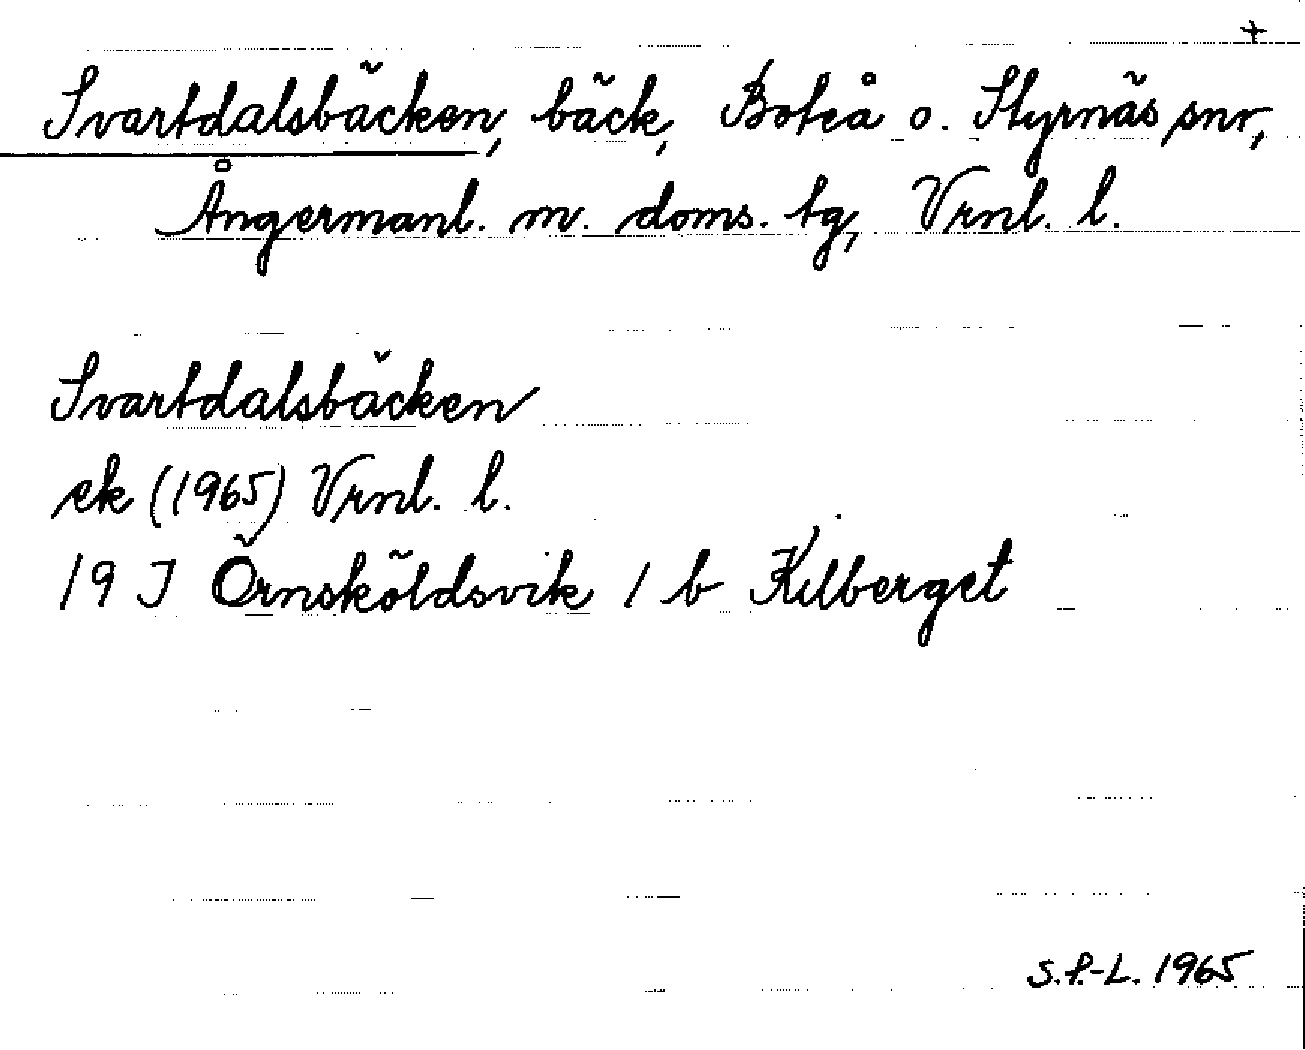 +
Svartdalsbäcken, bäck, Boteå o. Styrnäs snr,
Ångermanl. m. doms. tg, Vrnl. l.
Svartdalsbäcken
ek (1965) Vrnl. l.
19 J Örnsköldsvik 1 b Kilberget
S.P.-L. 1965